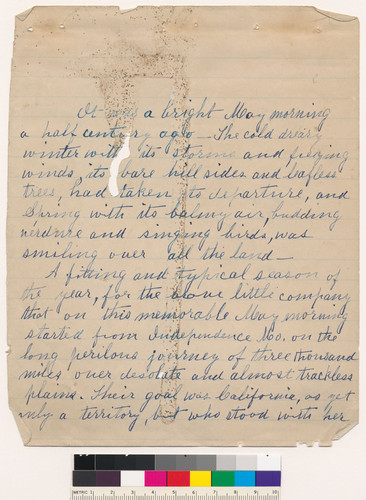 It was a bright May morning
a half century ago — The cold dreary
winter with its storms and freezing
winds, its bare hill sides and leafless
trees, had taken its departure, and
Spring with its balmy air, budding
verdure and singing birds, was
smiling over all the land —
A fitting and typical season of
the year, for the brave little company
that on this memorable May morning
started from Independence Mo. on the
long perilous journey of three thousand
miles over desolate and almost trackless
plains. Their goal was California, as yet
only a territory, but who stood with her